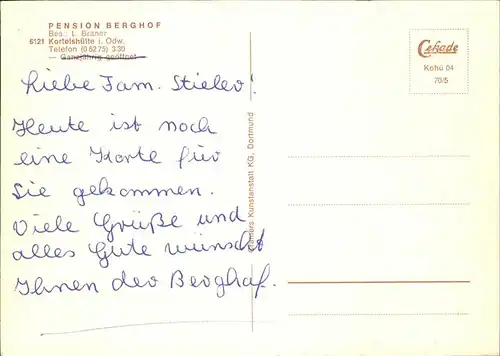 PENSION BERGHOF
Bes.: L. Braner
6121 Kortelshütte i. Odw.
Telefon (06275) 330
— Ganzjährig geöffnet —
Liebe Fam. Stieler!
Heute ist noch
eine Karte für
Sie gekommen.
Viele Grüße und
alles Gute wünscht
Ihnen der Berghof.
Cramers Kunstanstalt KG, Dortmund
Cekade
Kohü 04
70/5